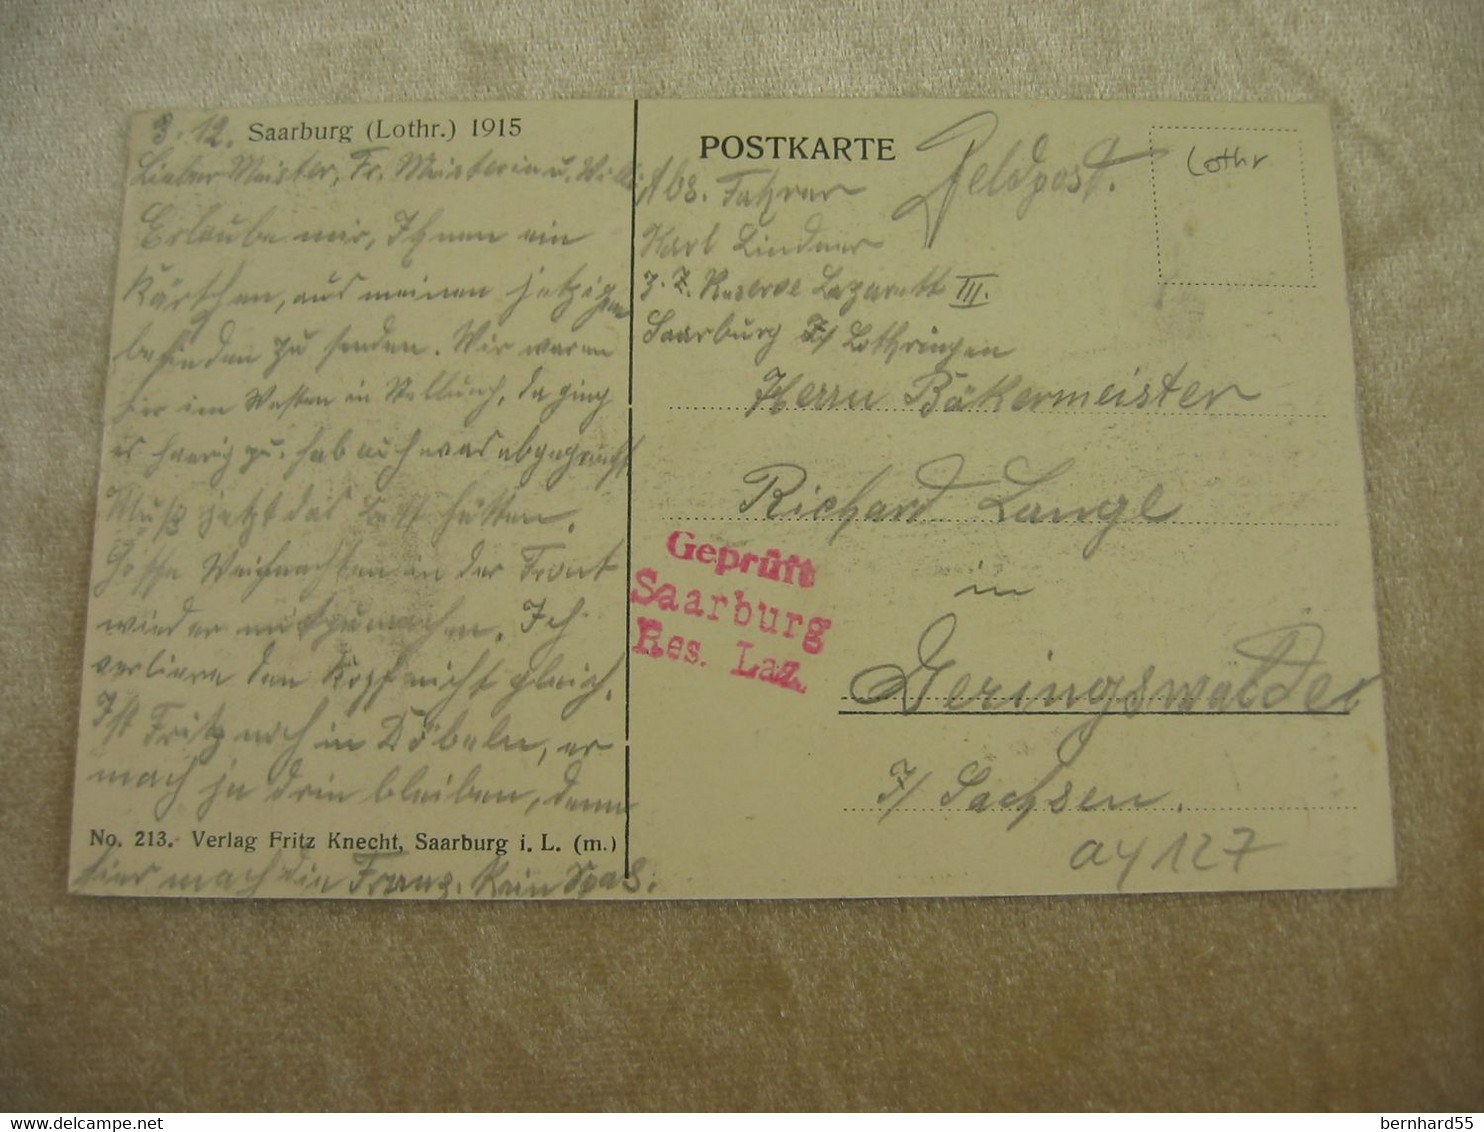 3.12. Saarburg (Lothr.) 1915
Lieber Meister, Fr. Meisterin u. Willi
Erlaube mir, Ihnen ein
Kärtchen, aus meinen jetzigen
befinden zu senden. Wir waren
hier im Westen in Stellung, da ging
es haarig zu. hab auch was abgekricht
Muß jetzt das Bett hütten.
Weihnachten an der Front
wieder mitzumachen. Ich
verliere den Kopf nicht gleich.
Ist Fritz noch in Döbeln, er
mach ja drin bleiben, denn
No. 213. Verlag Fritz Knecht, Saarburg i. L. (m.)
hier mach die Franz. Kein Spas.
POSTKARTE
Feldpost.
Lothr
Abs. Fahrer
Karl Lindner
z. Z. Reserve Lazarett III.
Saarburg I/ Lothringen
Herrn Bäkermeister
Richard Lange
in
Geringswalde
I/ Sachsen.
Geprüft
Saarburg
Res. Laz.
ay 127
bernhard55